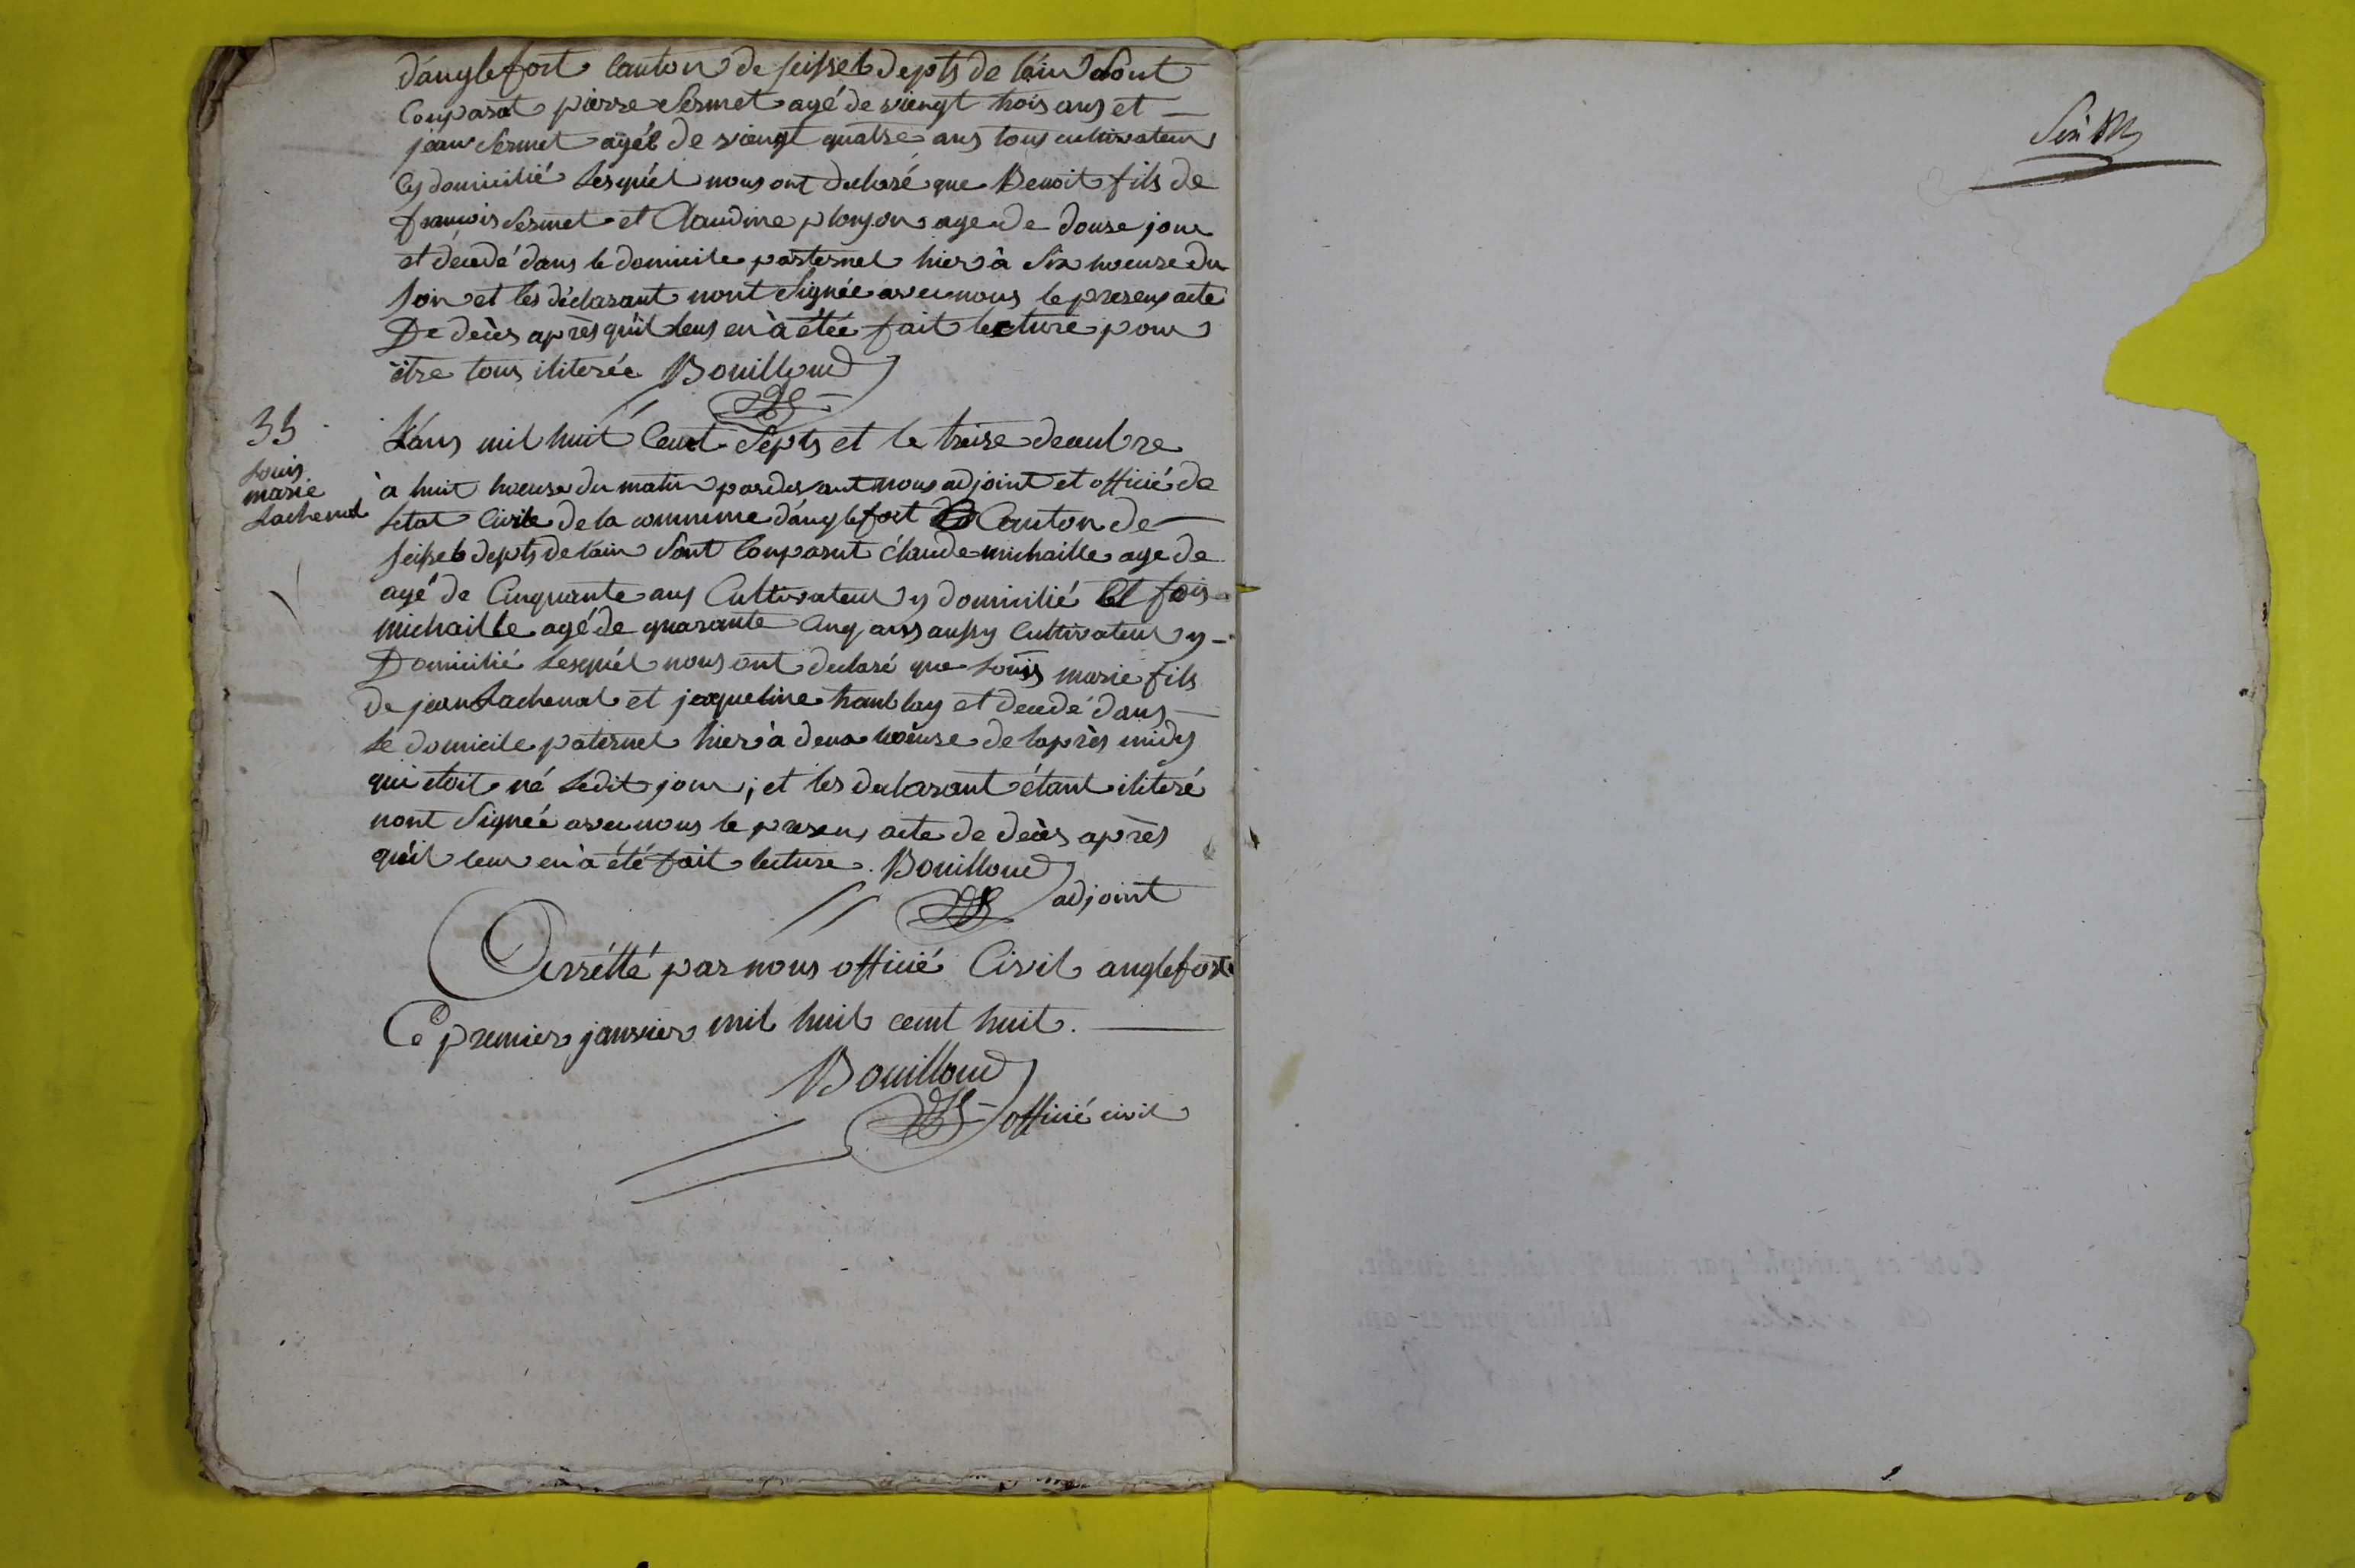 d'anglefort Canton de seissel depts de l'ain sont
Comparut pierre Sermet agé de viengt trois ans et
jean Sermet agét de viengt quatre ans tous cultivateur
les domicilié Lesquél nous ont declaré que Benoit fils de
françois Sermet et Claudine plonjon age de douse jour
et décédé dans le domicile pasternel hier à Six hoeure du
soir et les déclarant nont Signée avec nous le presens acte
De décès après quil leus en à étée fait lecture pour
être tous iliterée Bouilloud
35
Louis
marie
Lachenal
L'ans mil huit Cent Septs et le treise
à huit hoeure du matin pardevant nous adjoint et officié de
letat Civile de la commune d'anglefort Canton de
seissel depts de l'ain Sont Comparut Claude michaille age de
agé de Cinquante ans Cultivateur y domicilié et fois
michaille agé de quarante Cinq ans aussy Cultivateur y
Domicilié Lesquél nous ont declaré que Louis marie fils
de jean Lachenal et jacqueline tranblay et decedé dans
Le domicile paternel hier à deux hoeure de laprès midy
qui etoit né Ledit jour, et les declarant étant iliteré
nont Signée avec nous le presens acte de décès après
qu'il leur en à été fait lecture. Bouilloud
adjoint
Arrétté par nous officié Civil anglefort
Ce premier janvier mil huit cent huit.
Bouilloud
officié civil
Six